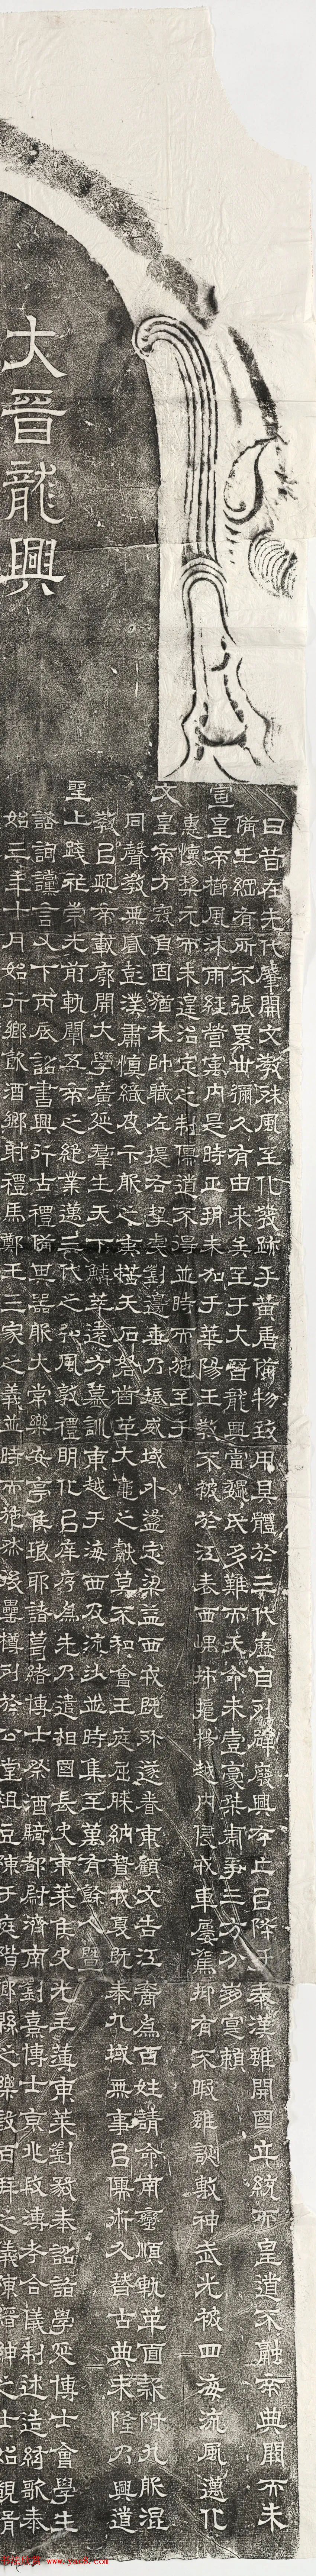 大晉龍興
曰昔在先代肇開文教殊風至化發迹乎黃唐備物致用具體於三代歷自列辟廢興存亡以降于秦漢雖開國立統而皇道不融帝典闕而未
備王綱有所不張累世彌久有由來矣至于大晉龍興當魏氏多難而天命未壹豪桀虎爭三方分崩寔賴
宣皇帝櫛風沐雨經營寓內是時正朔未加乎華陽王教不被於江表西嵎跋扈揚越內侵戎車屢駕抑有不暇雖誕敷神武光被四海流風邁化
惠懷黎元而未遑治定之制儒道不得並時而施至于
文皇帝方寇負固猶未帥職左提右挈虔劉邊垂乃振威域外盪定梁益西戎既殄遂眷東顧文告江裔為百姓請命南蠻順軌革面款附九服混
同聲教無貳彭濮肅慎織皮卉服之夷楛矢石砮齒革大龜之獻莫不和會王庭屈膝納贄戎夏既泰九域無事以儒術久替古典未隆乃興道
教以熙帝載廓開大學廣延群生天下鱗萃遠方慕訓東越于海西及流沙並時集至萬有餘人暨
聖上踐祚崇光前軌闡五帝之絕業邁三代之弘風敦禮明化以庠序為先乃遣相國長史東萊侯史光主簿東萊劉毅奉詔詣學延博士會學生
諮詢讜言又下丙辰詔書興行古禮備其器服大常樂安亭侯琅耶諸葛緒博士祭酒騎都尉濟南劉熹博士京兆段溥考合儀制述造絃歌泰
始三年十月始行鄉飲酒鄉射禮馬鄭王三家之義並時而施然後罍樽列於公堂俎豆陳于庭階鄉縣之樂設百拜之儀陳縉紳之士始覩揖